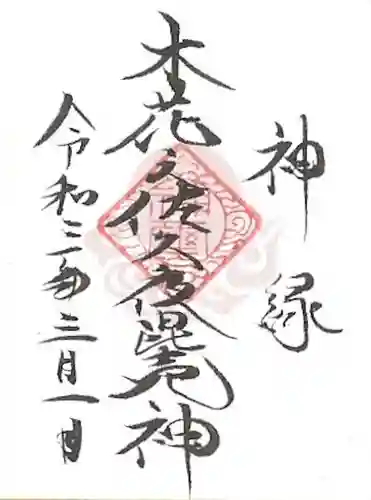 神縁
木花之佐久夜毘売神
令和二年三月一日